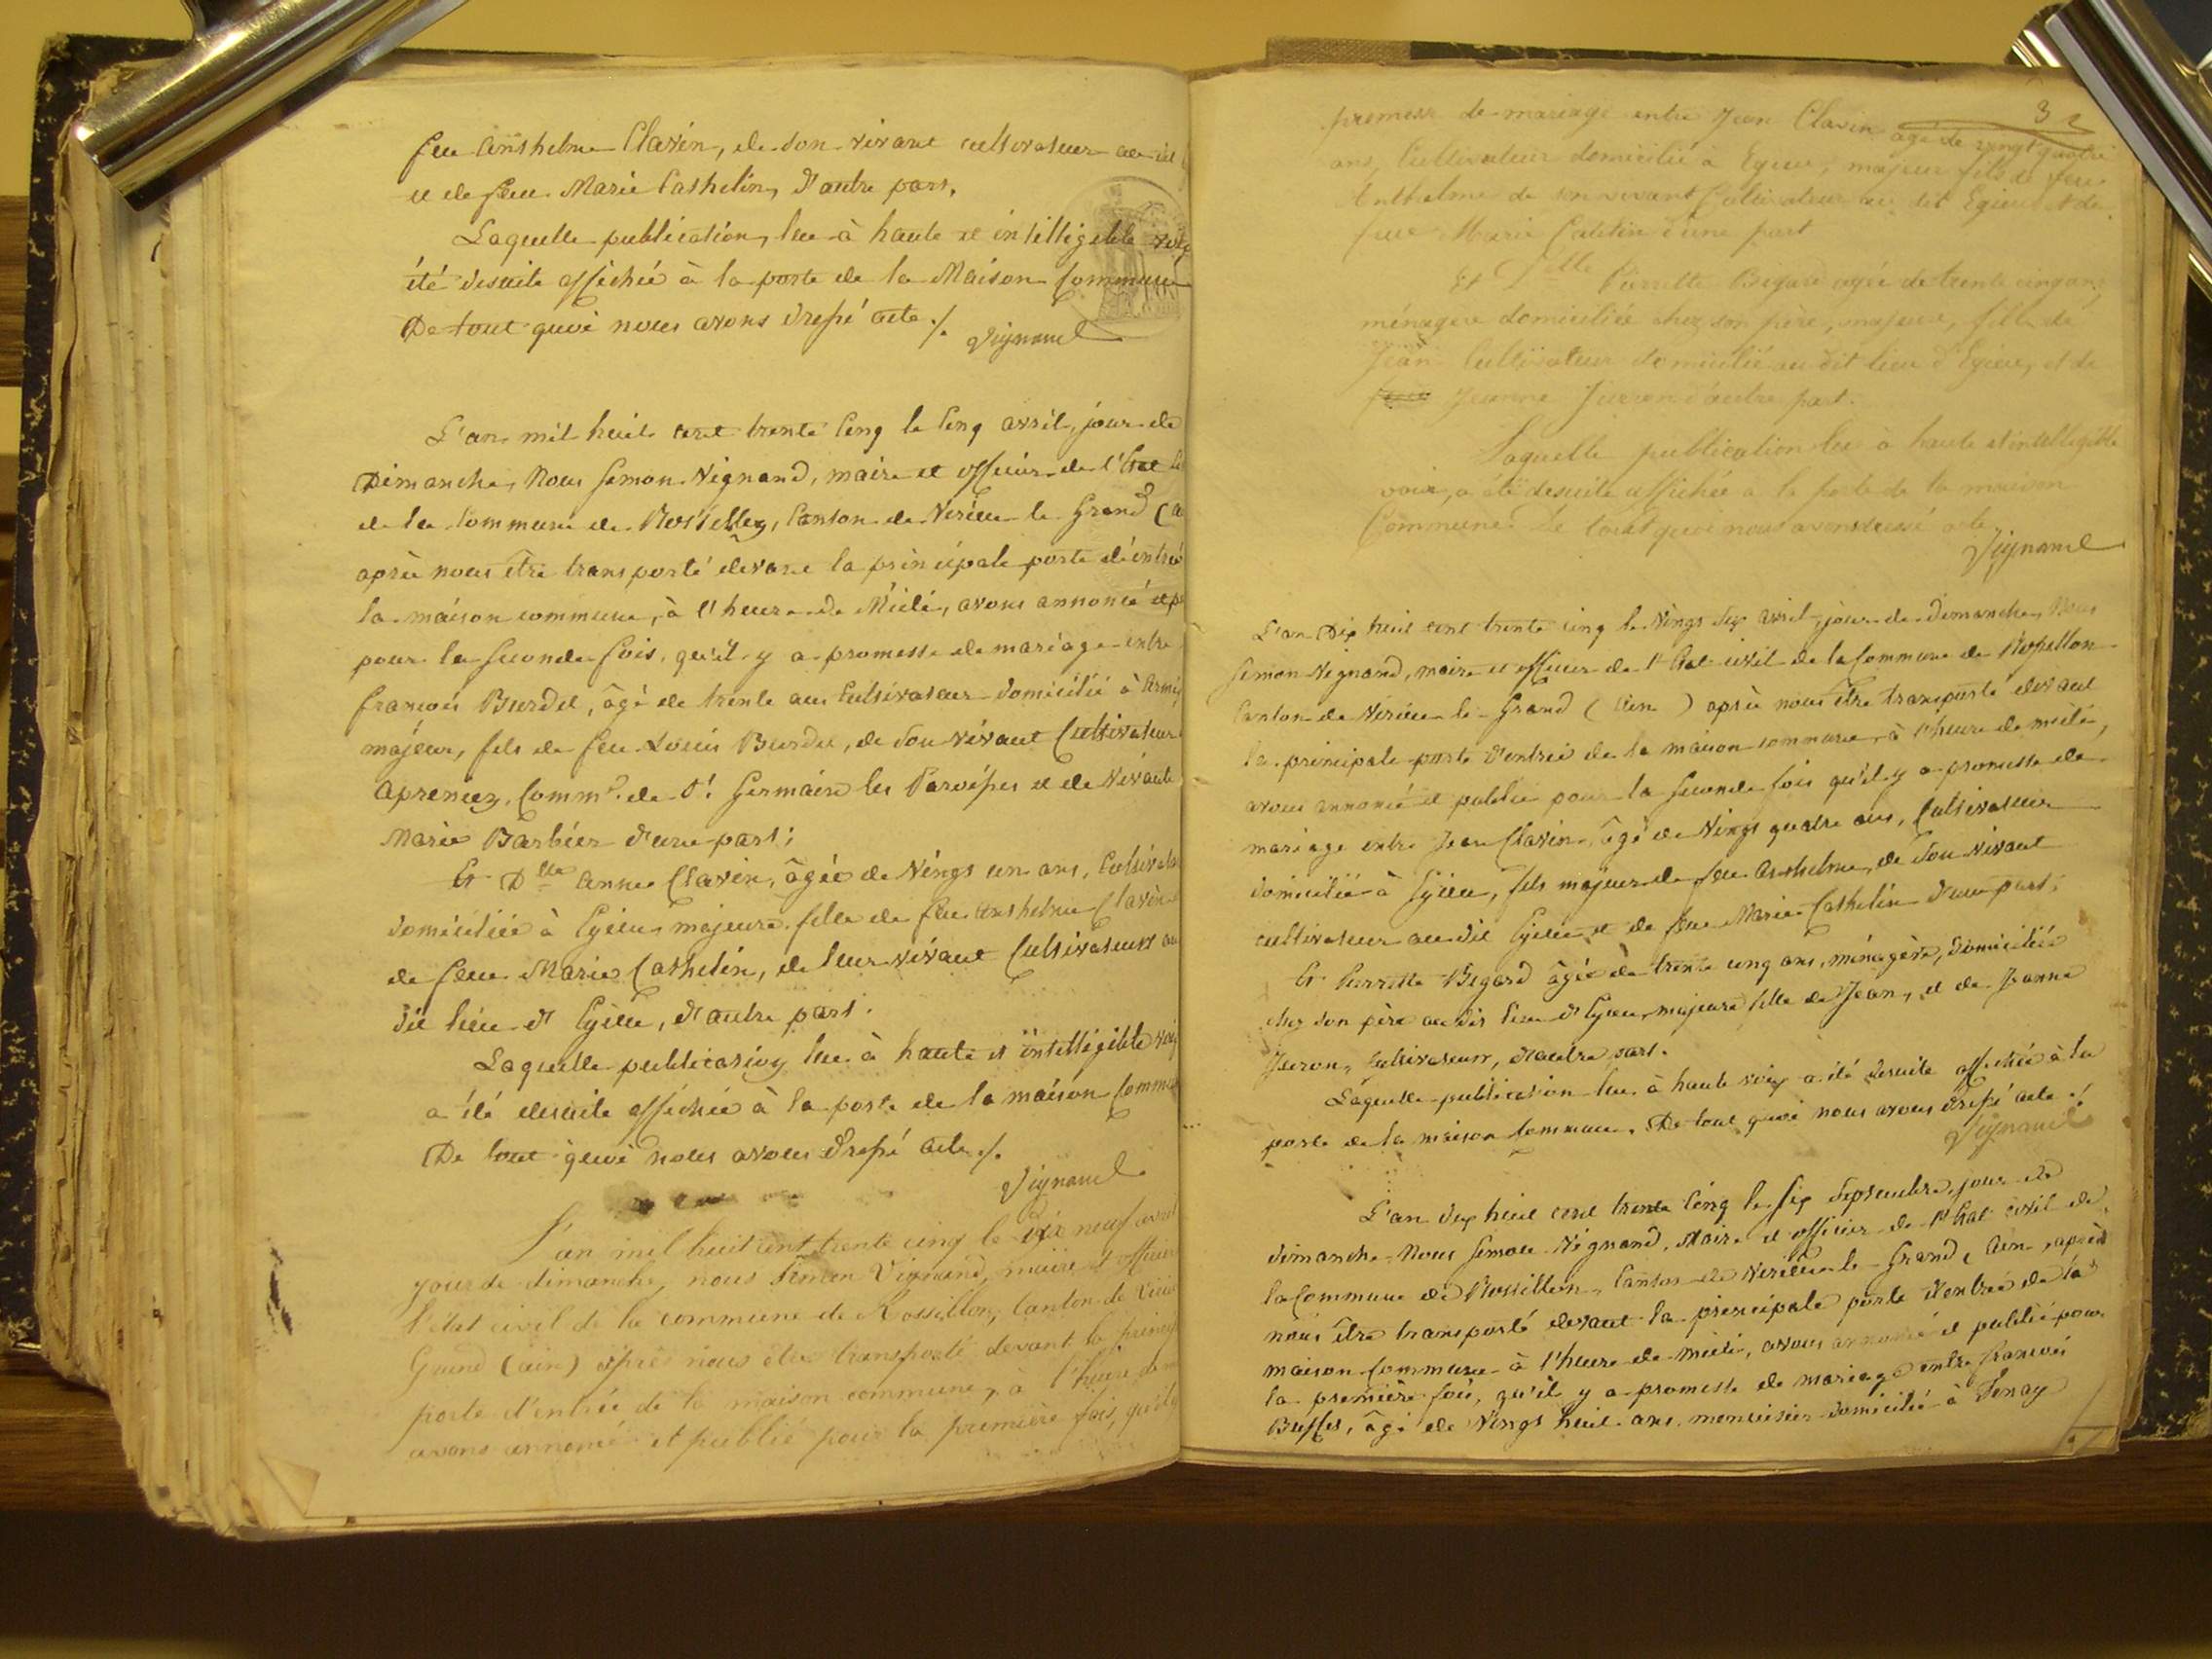 feu Anthelme Clavin, de son vivant cultivateur au dit
et de feue Marie Cathelin, d'autre part.
Laquelle publication, lue à haute et intelligible voix
été desuite affichée à la porte de la Maison Commune
De tout quoi nous avons dressé acte ./.
Vignand
L'an mil huit cent trente cinq le cinq avril, jour de
Dimanche, Nous Simon Vignand, maire et officier de l'état
de la Commune de Rossillon, Canton de Virieu le Grand
après nous être transporté devant la principale porte d'entrée
la maison commune, à l'heure de Midi, avons annoncé et
pour la seconde fois, qu'il y a promesse de mariage entre
françois Burdet, âgé de trente ans Cultivateur domicilié à
majeur, fils de feu Louis Burdet, de son vivant Cultivateur
Comm.e de St. Germain les Paroisses et de vivante
Marie Barbier d'une part;
Et Dlle Anne Clavin, âgée de vingt un ans,
domiciliée à Egieu, majeure fille de feu Anthelme Clavin
de feue Marie Cathelin, de leur vivant Cultivateurs au
dit lieu d'Egieu, d'autre part.
Laquelle publication lue à haute et intelligible voix
a été desuite affichée à la porte de la maison
De tout quoi nous avons dressé acte ./.
Vignand
L'an mil huit cent trente cinq le dix neuf avril
jour de dimanche, nous Simon Vignand, maire et officier
l'état civil de la commune de Rossillon, Canton de
Grand (ain) après nous être transporté devant la
porte d'entrée de la maison commune, à l'heure de
avons annoncé et publié pour la première fois, qu'il y
32
promesse de mariage entre Jean Clavin âgé de vingt quatre
ans, Cultivateur domicilié à Egieu, majeur fils de feu
Anthelme de son vivant Cultivateur au dit Egieu et de
feue Marie Catelin d'une part
Et Delle Pierrette Bigard agée de trente cinq ans,
ménagère domiciliée chez son père, majeure, fille de
Jean Cultivateur domicilié au dit lieu d'Egieu, et de
Jeanne Juron d'autre part.
Laquelle publication lue à haute et intelligible
voix, a été desuite affichée à la porte de la maison
Commune. De tout quoi nous avons dressé acte
Vignand
L'an Dix huit cent trente cinq le vingt six avril, jour de dimanche, Nous
Simon Vignand, maire et officier de l'état civil de la Commune de Rossillon
Canton de Virieu le Grand (Ain) après nous être transporté devant
la principale porte d'entrée de la maison commune, à l'heure de midi,
avons annoncé et publié pour la seconde fois qu'il y a promesse de
mariage entre Jean Clavin, âgé de vingt quatre ans, Cultivateur
domicilié à Egieu, fils majeur de feu Anthelme, de son vivant
cultivateur au dit Egieu et de feue Marie Cathelin d'une part;
Et Pierrette Bigard âgée de trente cinq ans, ménagère, domiciliée
chez son père au dit lieu d'Egieu, majeure fille de Jean, et de Jeanne
Juron, Cultivateurs, d'autre part.
Laquelle publication lue à haute voix a été desuite affichée à la
porte de la maison Commune. De tout quoi nous avons dressé acte ./.
Vignand
L'an dix huit cent trente cinq le six Septembre, jour de
dimanche, Nous Simon Vignand, Maire et officier de l'état civil de
la Commune de Rossillon, Canton de Virieu le Grand, Ain, après
nous être transporté devant la principale porte d'entrée de la
maison Commune à l'heure de midi, avons annoncé et publié pour
la première fois, qu'il y a promesse de mariage entre françois
âgé de vingt huit ans, menuisier domicilié à Tenay